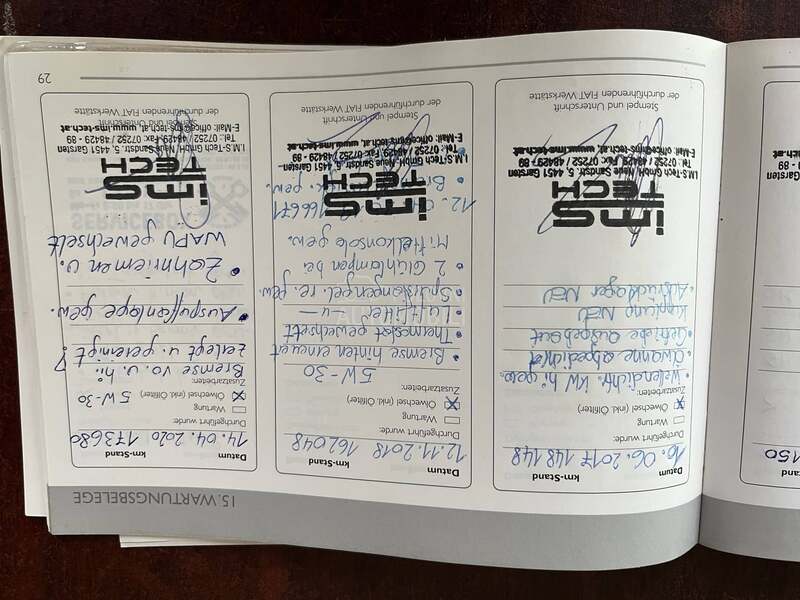 15. WARTUNGSBELEGE
150
Datum km-Stand
16. 06. 2017 148 148
Durchgeführt wurde:
Wartung
Ölwechsel (inkl. Ölfilter)
Zusatzarbeiten:
• Wellendichtr. KW hi gew.
• Ölwanne abgedichtet
• Getriebe ausgebaut
Kupplung NEU
• Ausrücklager NEU
ims
TECH
I.M.S-Tech GmbH Neue Sandstr. 5, 4451 Garsten
Tel.: 07252 / 48429 Fax: 07252 / 48429 - 89
E-Mail: office@ims-tech.at, www.ims-tech.at
Stempel und Unterschrift
der durchführenden FIAT Werkstätte
Datum km-Stand
12.11.2018 162048
Durchgeführt wurde:
Wartung
Ölwechsel (inkl. Ölfilter)
Zusatzarbeiten: 5W-30
• Bremse hinten erneuert
• Thermostat gewechselt
• Luftfilter —"—
• Spurstangengel. re. gew.
• 2 Glühlampen bei
Mittelkonsole gew.
12. 166671
ims
TECH
I.M.S-Tech GmbH Neue Sandstr. 5, 4451 Garsten
Tel.: 07252 / 48429 Fax: 07252 / 48429 - 89
E-Mail: office@ims-tech.at, www.ims-tech.at
Stempel und Unterschrift
der durchführenden FIAT Werkstätte
Datum km-Stand
14.04.2020 173680
Durchgeführt wurde:
Wartung
Ölwechsel (inkl. Ölfilter) 5W-30
Zusatzarbeiten:
Bremse vo. u. hi.
zerlegt u. gereinigt
• Auspuffanlage gew.
• Zahnriemen u.
WAPU gewechselt
ims
TECH
I.M.S-Tech GmbH Neue Sandstr. 5, 4451 Garsten
Tel.: 07252 / 48429 Fax: 07252 / 48429 - 89
E-Mail: office@ims-tech.at, www.ims-tech.at
Stempel und Unterschrift
der durchführenden FIAT Werkstätte
29